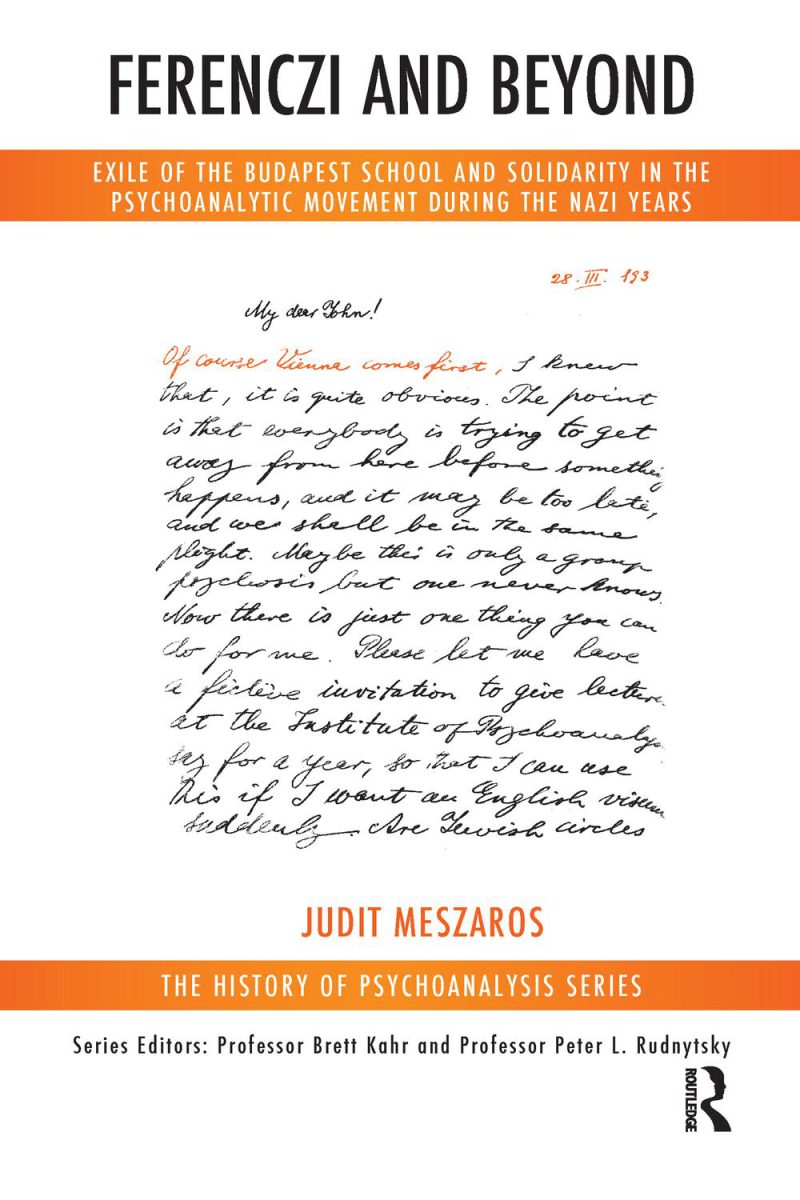 FERENCZI AND BEYOND
EXILE OF THE BUDAPEST SCHOOL AND SOLIDARITY IN THE
PSYCHOANALYTIC MOVEMENT DURING THE NAZI YEARS
28. III. 193
My dear John!
Of course Vienna comes first, I knew
that, it is quite obvious. The point
is that everybody is trying to get
away from here before somethin
happens, and it may be too late,
and we shall be in the same
plight. Maybe this is only a group
psychosis but one never knows.
Now there is just one thing you can
do for me. Please let me have
a fictive invitation to give lecture
at the Institute of Psychoanaly
say for a year, so that I can use
this if I want an English visum
suddenly. Are Jewish circles
JUDIT MESZAROS
THE HISTORY OF PSYCHOANALYSIS SERIES
Series Editors: Professor Brett Kahr and Professor Peter L. Rudnytsky
ROUTLEDGE